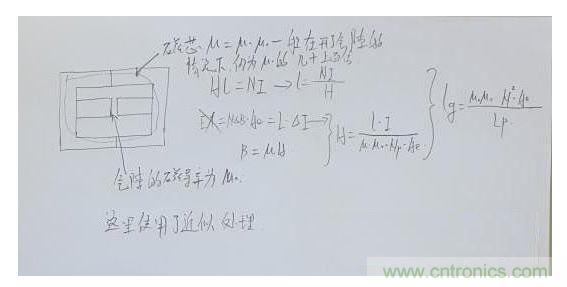 磁芯 μ = μ₀·μᵣ 一般在开了气隙的
情况下,仍为μ₀的几十上百倍
Hl = NI → l = NI/H
= N·ΔB·Ae = L·ΔI →
B = μH
H = L·I/(μᵣ·μ₀·Np·Ae)
lg = N²·Ae/Lp
气隙的磁导率为μ₀
这里使用了近似处理
www.cntronics.com